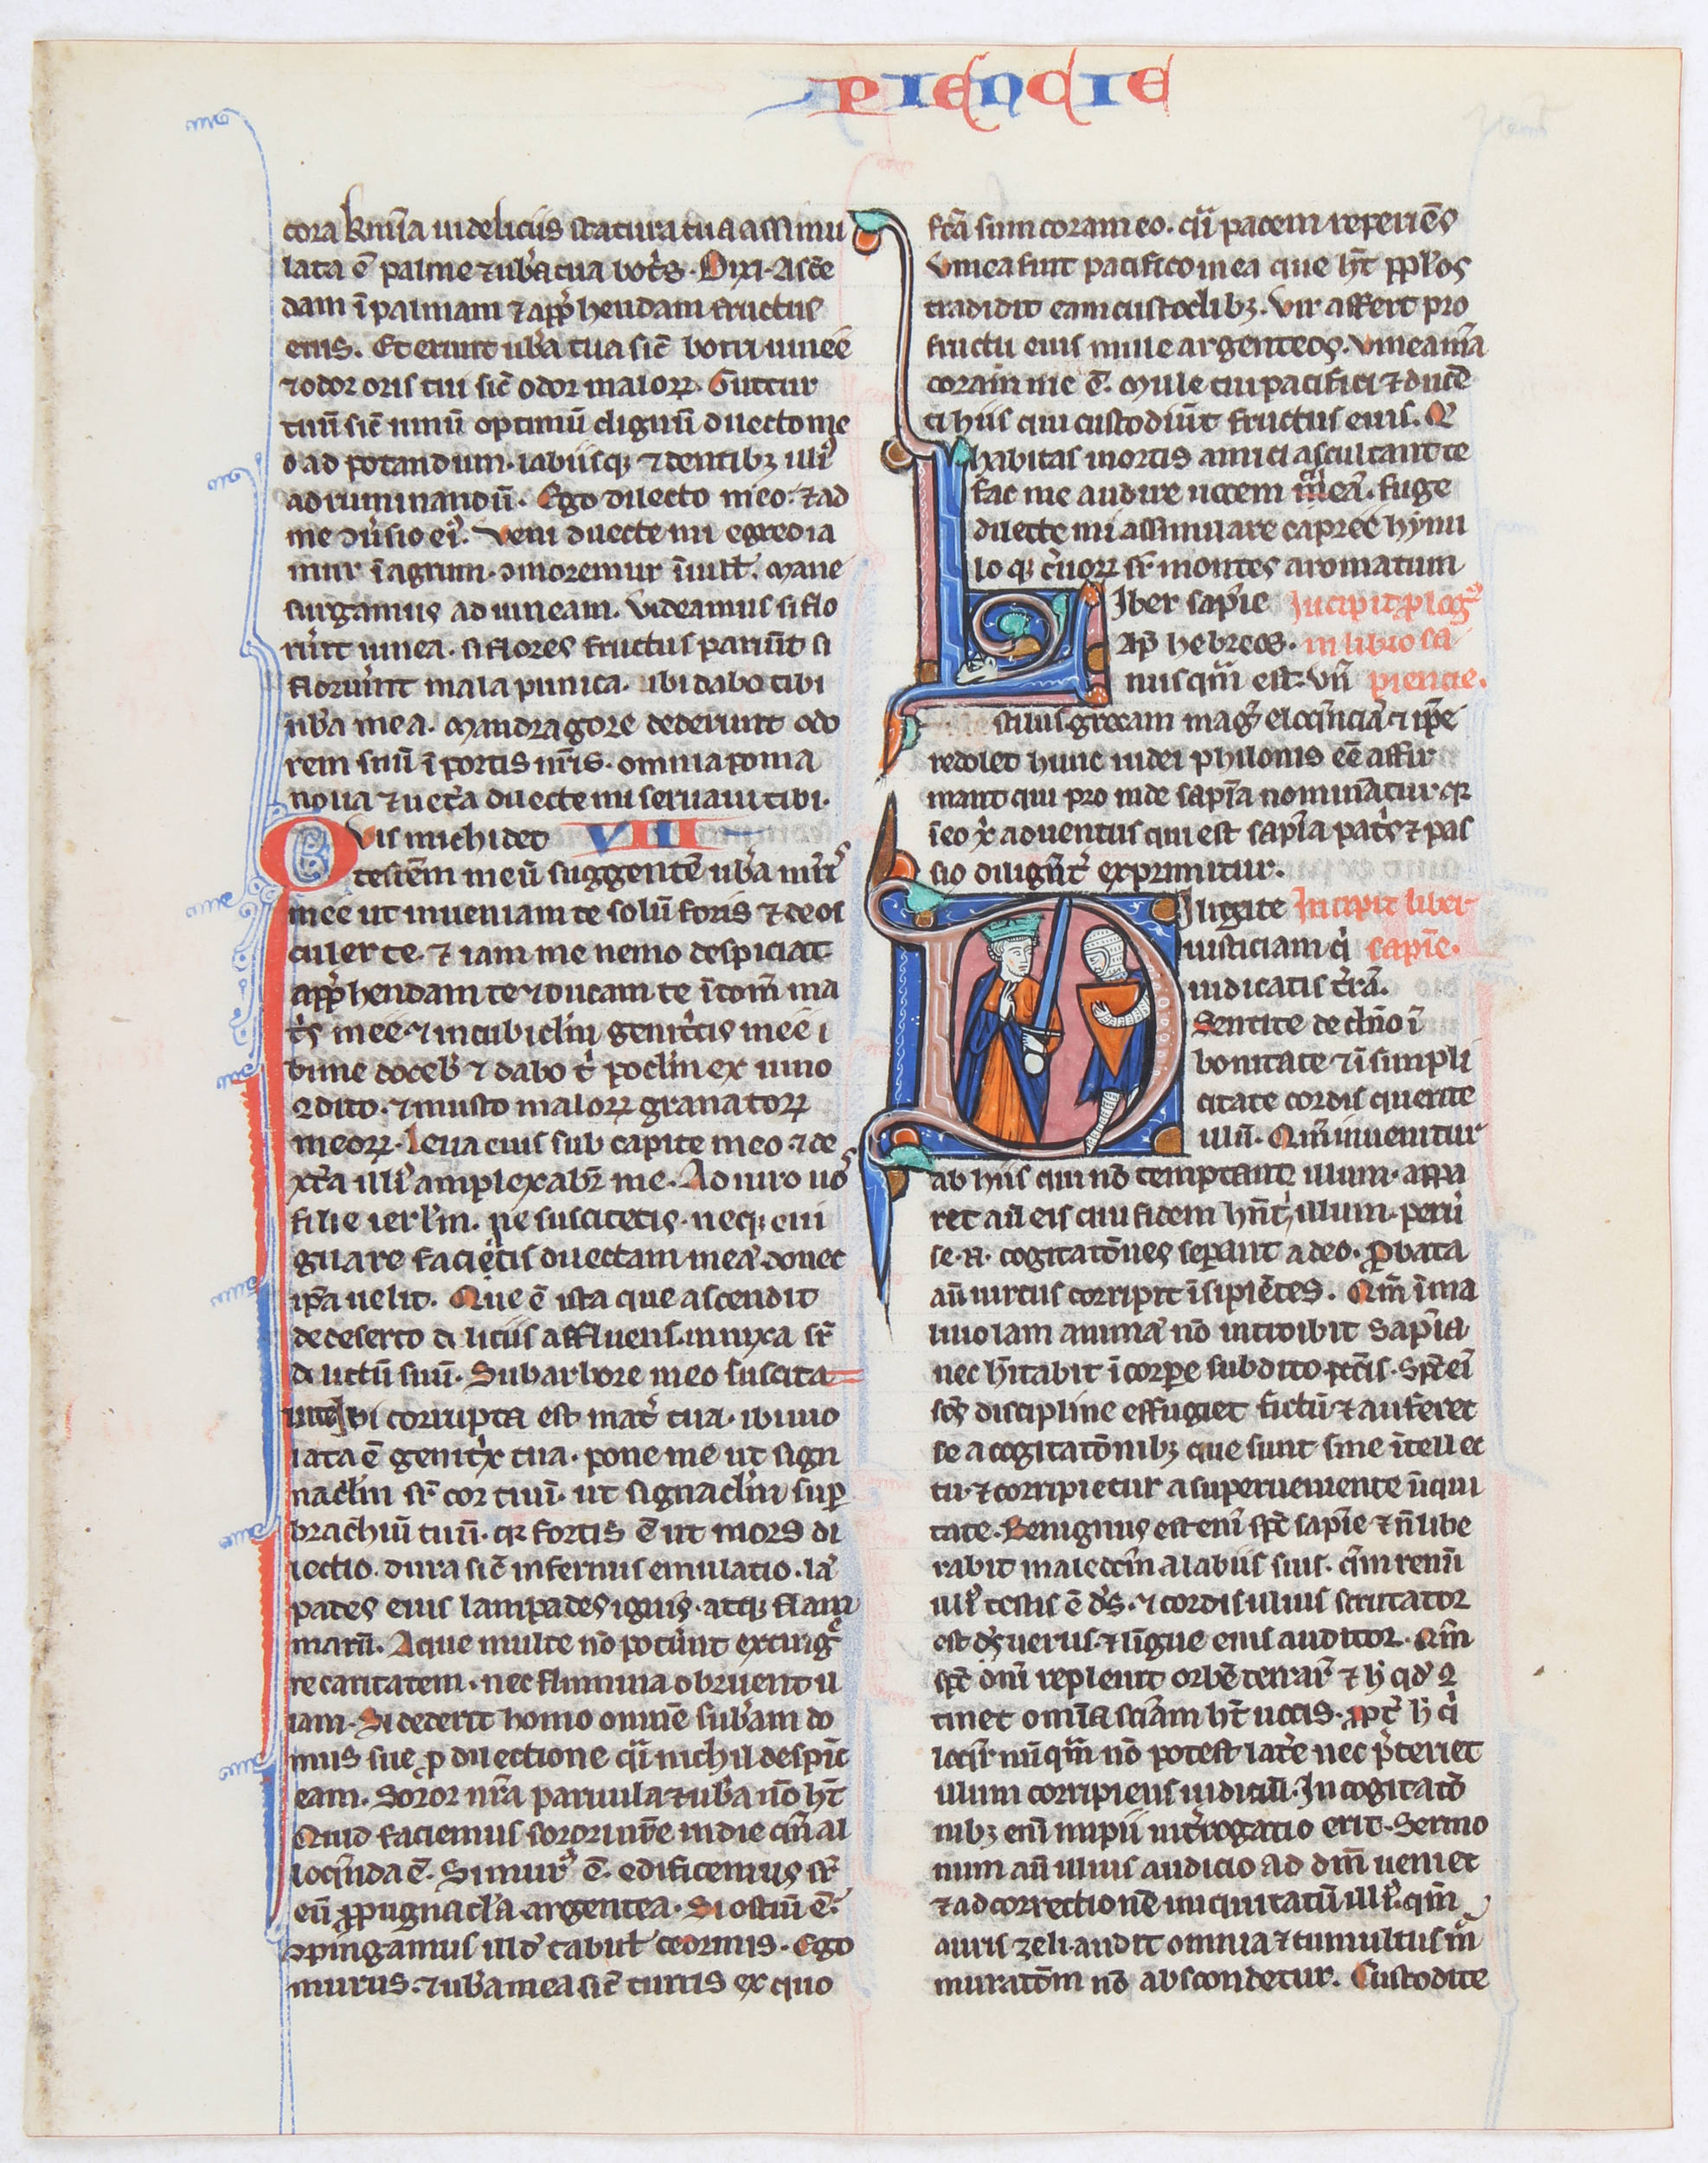 PIENCIE
cora kr̄mīa in deliciis statura tua assimu
lata ē palme ⁊ ub̾a tua bot̾s. Dixi. Ascē
dam ī palmam ⁊ app̾hendam fructus
eius. Et erunt ub̾a tua sic̄ botri uineē
⁊ odor oris tui sic̄ odor malorꝝ. Guttur
tuū sic̄ uinū optimū dignū dilecto me
o ad potandum. labiisqꝫ ⁊ dentibꝫ illi᾽
ad ruminandū. Ego dilecto meo: ⁊ ad
me ꝯu̾sio ei᾽. Veni dilecte mi egredia
mur ī agrum. ꝯmoremur ī uill̄. Mane
surgamus ad uineam. Videamus si flo
ru̾it uinea. si flores fructus pariūt si
floru̾unt mala punica. ibi dabo tibi
ub̾a mea. Mandragore dederunt odo
rem suū ī portis nr̄is. omnia poma
noua ⁊ uet̾a dilecte mi seruaui tibi.
Vis michi det VIII
te fr̄em meū suggentē ub̾a mr̄is
meē ut inueniam te solū foris ⁊ deos
culer te. ⁊ iam me nemo despiciat
app̾hendam te ⁊ ducam te ī dom̄ ma
t̾s meē ⁊ in cubicl̄m genit̾cis meē i
bi me doceb̾ ⁊ dabo t̾ pocl̄m ex uino
ꝯdito. ⁊ musto malorꝝ granatorꝝ
meorꝝ. Leua eius sub capite meo ⁊ de
xt̾a illi᾽ amplexabr̄ me. Adiuro uos
filie ierl̄m. ne suscitetis. neqꝫ eui
gilare faciatis dilectam meā donec
ip̄a uelit. Que ē ista que ascendit
de deserto deliciis affluens. innixa sr̄
dilectū suū. Sub arbore meo suscita
ui te. ibi corrupta est mat̾ tua. ibi uio
lata ē genit̾x tua. pone me ut signa
naclm̄ sr̄ cor tuū. ut signaclm̄ sup̄
brachiū tuū. qꝛ fortis ē ut mors di
lectio. dura sic̄ infernus emulatio. lā
pades eius lampades ignis. atqꝫ flam
marū. Aque multe nō pot̾unt exting᾽e
re caritatem. nec flumina obruent il
lam. Si dederit homo omnē sub̄am do
mus sue ꝓ dilectione qi̾ nichil despic̄
eam. Soror nr̄a paruula ⁊ ub̾a nō hr̄t
Quid faciemus sorori nr̄e in die qn̄ al
loq̄nda ē. Si mur᾽ ē. edificemus sr̄
eū ꝓpugnacl̄a argentea. Si ostiū ē:
ꝯpingamus ill̄d tabul̄ cedrinis. Ego
murus. ⁊ ub̾a mea sic̄ turris ex quo
fc̄ā sum coram eo. qi̾ pacem reperiēs
Vinea fuit pacifico in ea que hr̄t ppl̄os
tradidit eam custodibꝫ. Vir affert pro
fructu eius mille argenteos. Vinea m̄a
coram me ē. Mille tui pacifici ⁊ ducē
ti hiis qui custodiūt fructus eius. Q
habitas in ortis amici ascultant te
fac me audire uocem m̄eā. fuge
dilecte mi assimilare capreē hynu
lo qꝫ c̾uorꝝ sr̄ montes aromatum
Liber sap̄ie Incipit plog᾽
ap̄ hebreos. in libro sa
nusqm̄ est. vn̄ piencie.
stilus grecam mag᾽ eloq̄nciā ⁊ ip̄e
redolet hunc iudei philonis eē affir
mant qui pro inde sap̄īa nominātur qꝛ
īeo x̄ aduentus qui est sap̄ia pat̾s ⁊ pas
sio dilign̄t᾽ exprimitur.
Diligite Incipit liber
iusticiam q̾ sapīe.
iudicatis t̾rā.
Sentite de dn̄o ī
bonitate ⁊ ī simpli
citate cordis querite
illū. Qm̄ inuenitur
ab hiis qui nō temptant illum. appa
ret aū eis qui fidem hn̄t ī illum. peru̾
se .n. cogitatōnes sep̄ant a deo. ꝓbata
aū uirtus corripit īsipiētes. Qm̄ ī ma
liuolam animā nō introibit sap̄ia
nec hītabit ī corpe subdito pcc̄is. Spc̄ eī
sc̄s discipline effugiet fictū ⁊ auferet
se a cogitatōnibꝫ que sunt sine ītellec
tu. ⁊ corripietur a superueniente īiqui
tate. Benignus est enī spc̄ sap̄ie ⁊ n̄ libe
rabit maledcm̄ a labiis suis. qm̄ renū
illi᾽ testis ē ds̄. ⁊ cordis illius scrutator
est ds̄ uerus. ⁊ līgue eius auditor. Qm̄
spc̄ dn̄i repleuit orbē terrar᾽ ⁊ h᾽ qd̾ ꝯ
tinet omīa sciam̄ hr̄t uocis. ꝓpt̾ h᾽ q̾
loqr̄ niq̄m nō potest lat̾e nec p̾teriet
illum corripiens iudiciū. In cogitatō
nibꝫ enī impii int̾rogatio erit. Sermo
num aū illius audicio ad dm̄ ueniet
⁊ ad correctionē iniquitatū illi᾽. qm̄
auris zeli audit omnia ⁊ tumultus m̄
muratōm nō abscondetur. Custodite